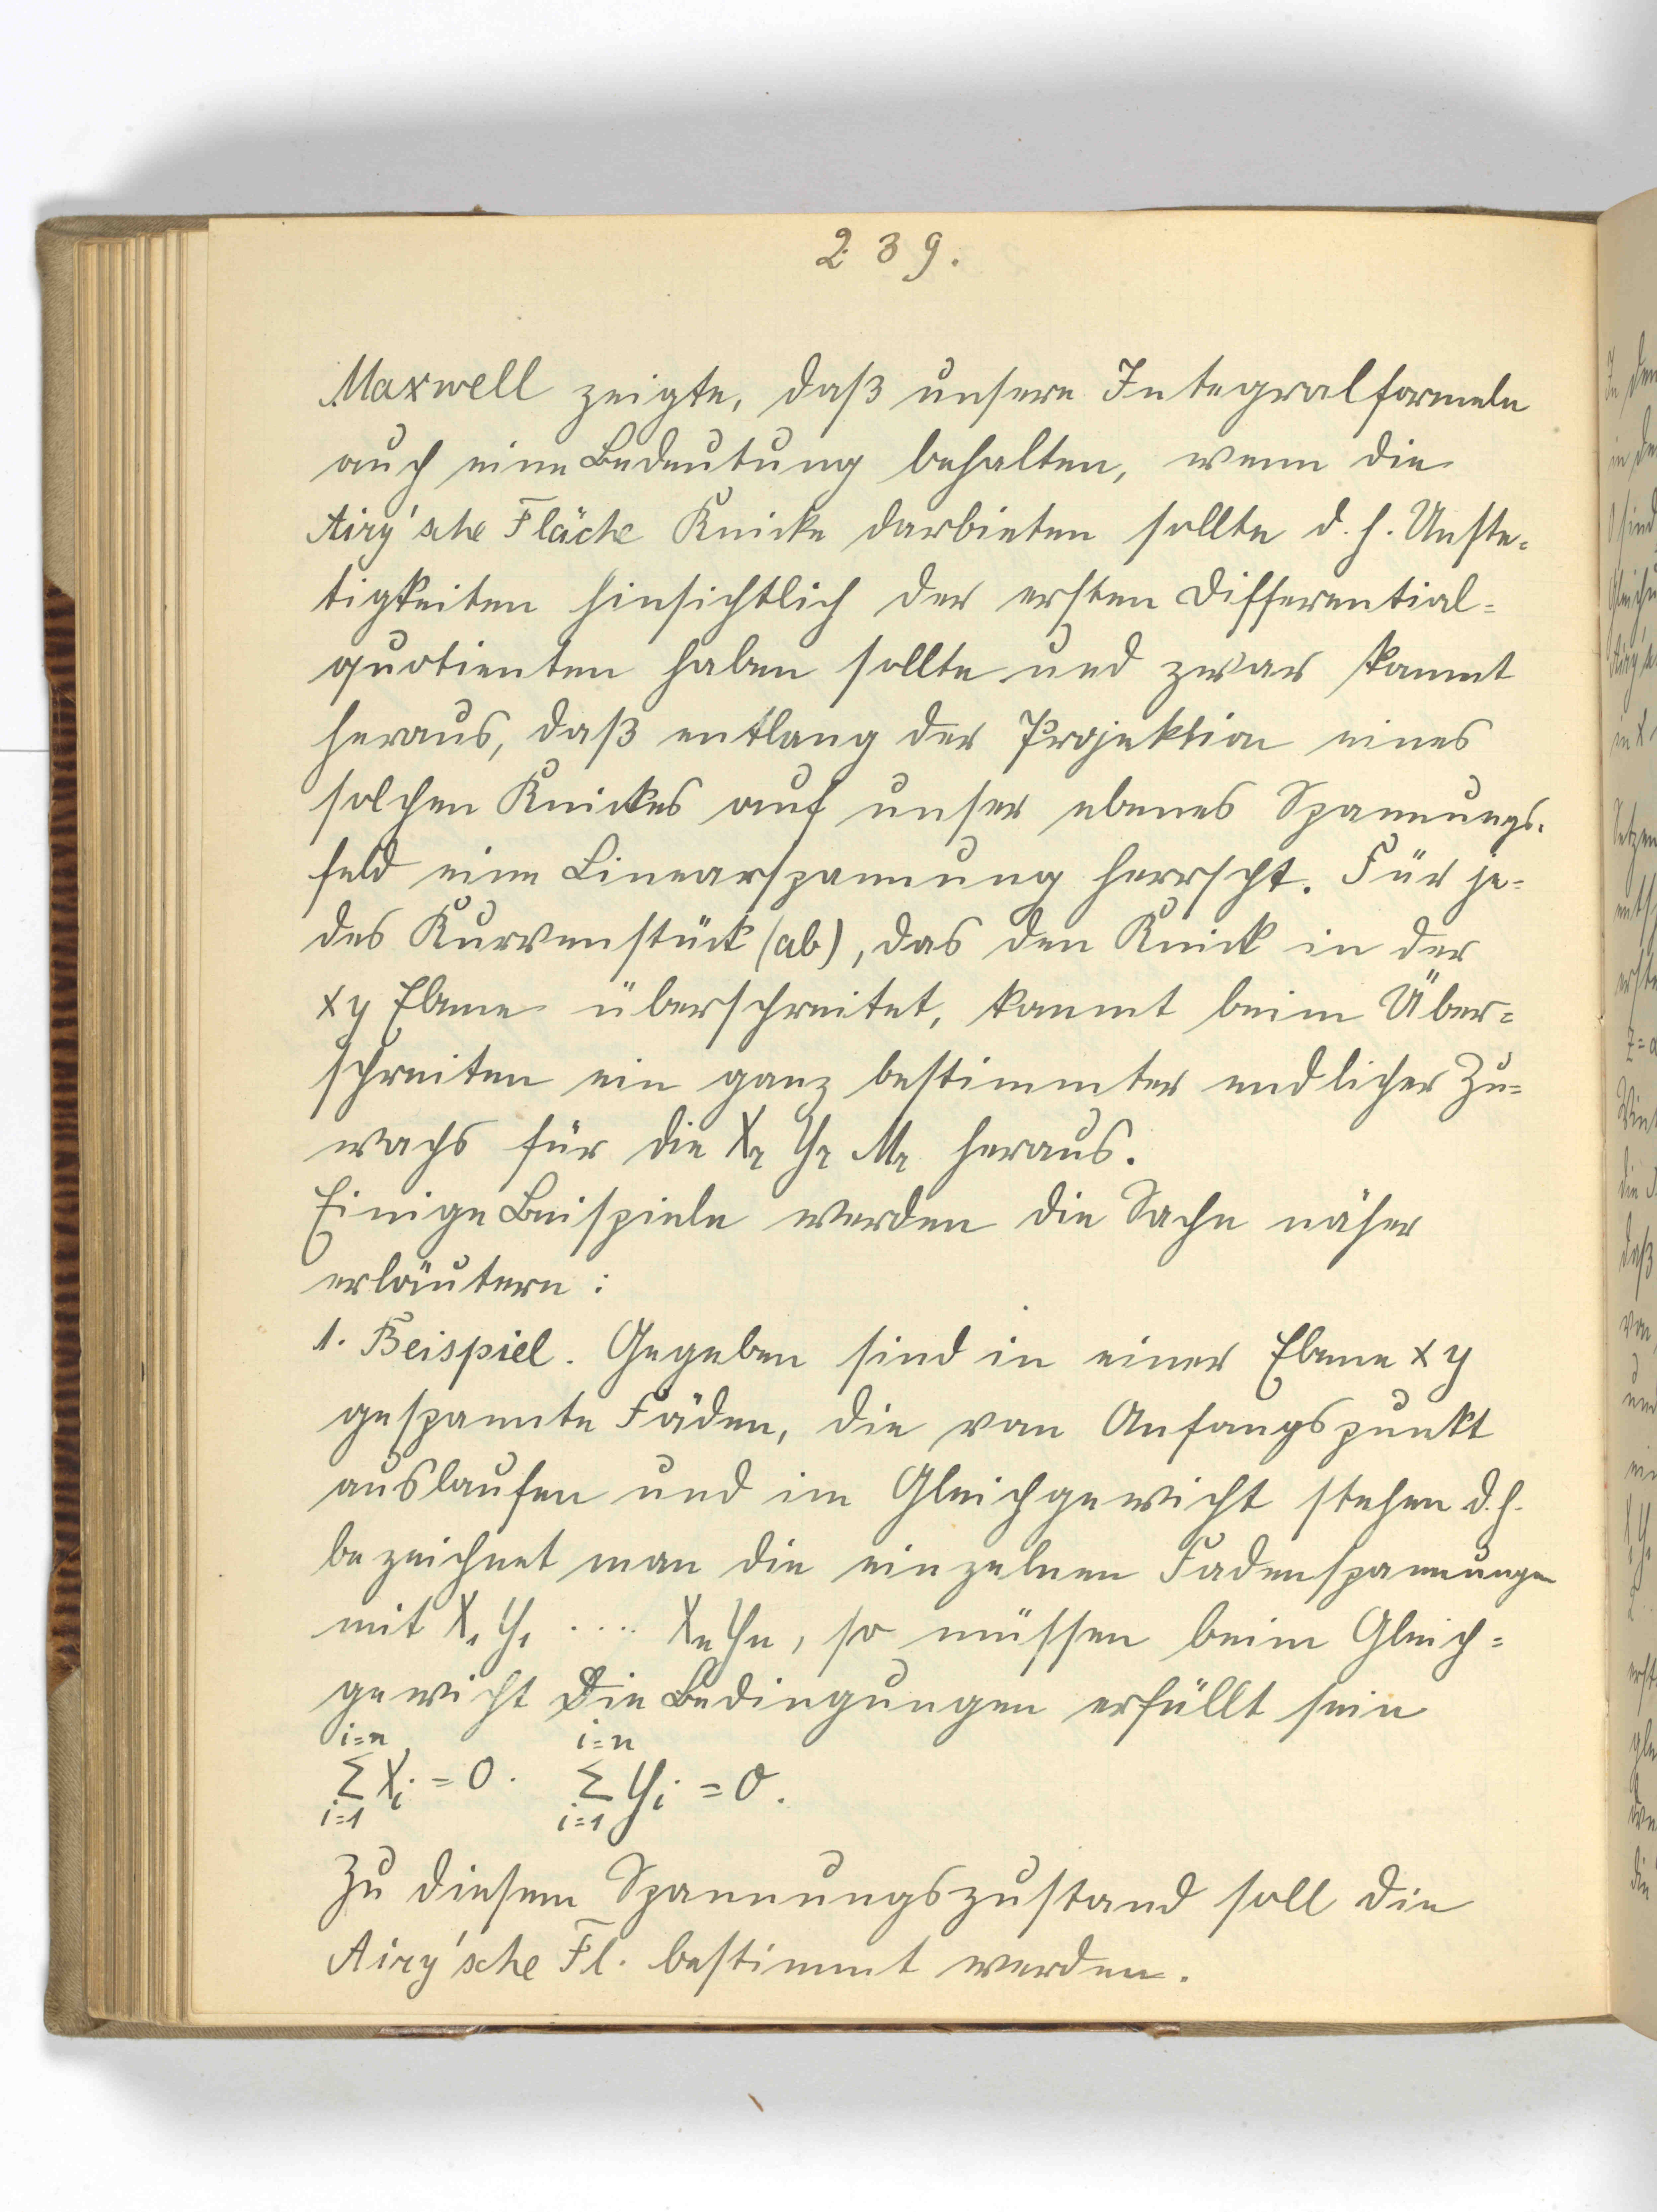 239.
Maxwell zeigte, daß unsere Integralformeln
auch eine Bedeutung behalten, wenn die
Airy'sche Fläche Knicke darbieten sollte d. h. Unste=
tigkeiten hinsichtlich der ersten Differential=
quotienten haben sollte und zwar kommt
heraus, daß entlang der Projektion eines
solchen Knickes auf unser ebenes Spannungs=
feld eine Linearspannung herrscht. Für je=
des Kurvenstück (ab), das den Knick in der
xy Ebene überschreitet, kommt beim Über=
schreiten ein ganz bestimmter endlicher Zu=
wachs für die X₂ Y₂ M₂ heraus.
Einige Beispiele werden die Sache näher
erläutern:
1. Beispiel. Gegeben sind in einer Ebene xy
gespannte Fäden, die vom Anfangspunkt
auslaufen und im Gleichgewicht stehen d. h.
bezeichnet man die einzelnen Fadenspannungen
mit X₁ Y₁ .... Xn Yn, so müssen beim Gleich=
gewicht die Bedingungen erfüllt sein
i=n i=n
Σ Xi = 0. Σ Yi = 0.
i=1 i=1
Zu diesem Spannungszustand soll die
Airy'sche Fl. bestimmt werden.